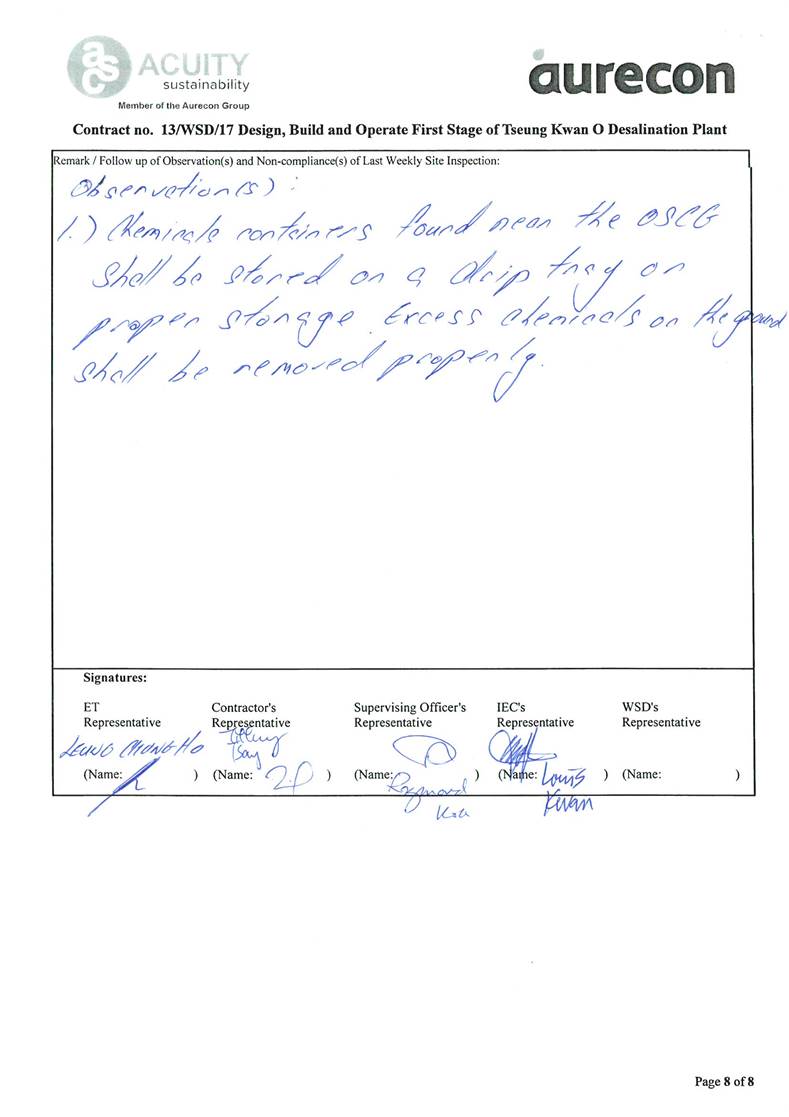 asc ACUITY
sustainability
Member of the Aurecon Group
aurecon
Contract no. 13/WSD/17 Design, Build and Operate First Stage of Tseung Kwan O Desalination Plant
Remark / Follow up of Observation(s) and Non-compliance(s) of Last Weekly Site Inspection:
Observation(s) :
1.) Chemicals containers found near the OSCG
shall be stored on a drip tray or
proper storage. Excess chemicals on the ground
shall be removed properly.
Signatures:
ET Representative
Contractor's Representative
Supervising Officer's Representative
IEC's Representative
WSD's Representative
LEUNG CHUNG HO
(Name: ) (Name: ) (Name: ) (Name: Louis Kwan ) (Name: )
Raymond
Page 8 of 8